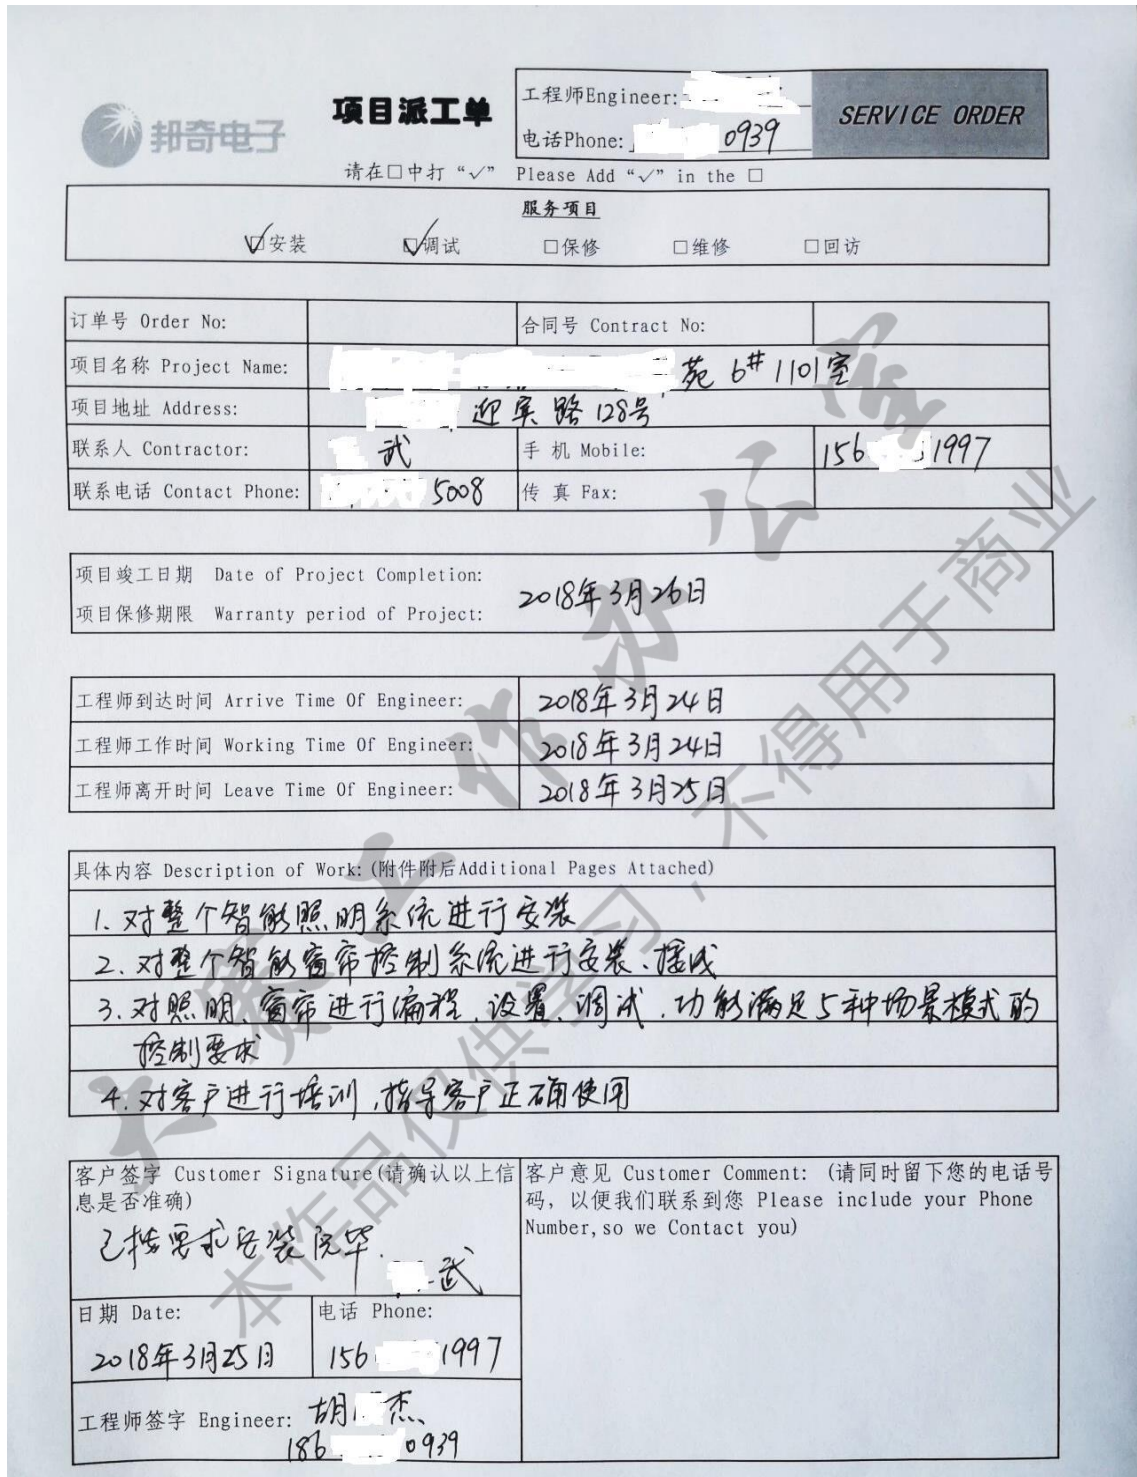 邦奇电子
项目派工单
工程师Engineer:
电话Phone: 0939
SERVICE ORDER
请在□中打“√” Please Add “√” in the □
服务项目
☑安装 ☑调试 □保修 □维修 □回访
订单号 Order No: 合同号 Contract No:
项目名称 Project Name: 苑 6# 1101室
项目地址 Address: 迎宾路128号
联系人 Contractor: 武 手 机 Mobile: 156 1997
联系电话 Contact Phone: 5008 传 真 Fax:
项目竣工日期 Date of Project Completion: 2018年3月26日
项目保修期限 Warranty period of Project:
工程师到达时间 Arrive Time Of Engineer: 2018年3月24日
工程师工作时间 Working Time Of Engineer: 2018年3月24日
工程师离开时间 Leave Time Of Engineer: 2018年3月25日
具体内容 Description of Work:(附件附后Additional Pages Attached)
1.对整个智能照明系统进行安装
2.对整个智能窗帘控制系统进行安装、接线
3.对照明、窗帘进行编程、设置、调试,功能满足5种场景模式的
控制要求
4.对客户进行培训,指导客户正确使用
客户签字 Customer Signature(请确认以上信
息是否准确)
已按要求安装完毕.
武
客户意见 Customer Comment: (请同时留下您的电话号
码, 以便我们联系到您 Please include your Phone
Number,so we Contact you)
日期 Date: 电话 Phone:
2018年3月25日 156 1997
工程师签字 Engineer: 胡 杰
186 0939
大赛工作办公室
本作品仅供学习，不得用于商业